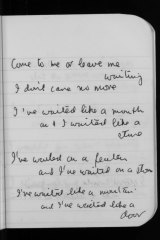 Come to me or leave me
waiting
I don't care no more
I've waited like a mouth
and I waited like a
stone
I've waited on a feather
and I've waited on a stone
I've waited like a mountain
and I've waited like a
door